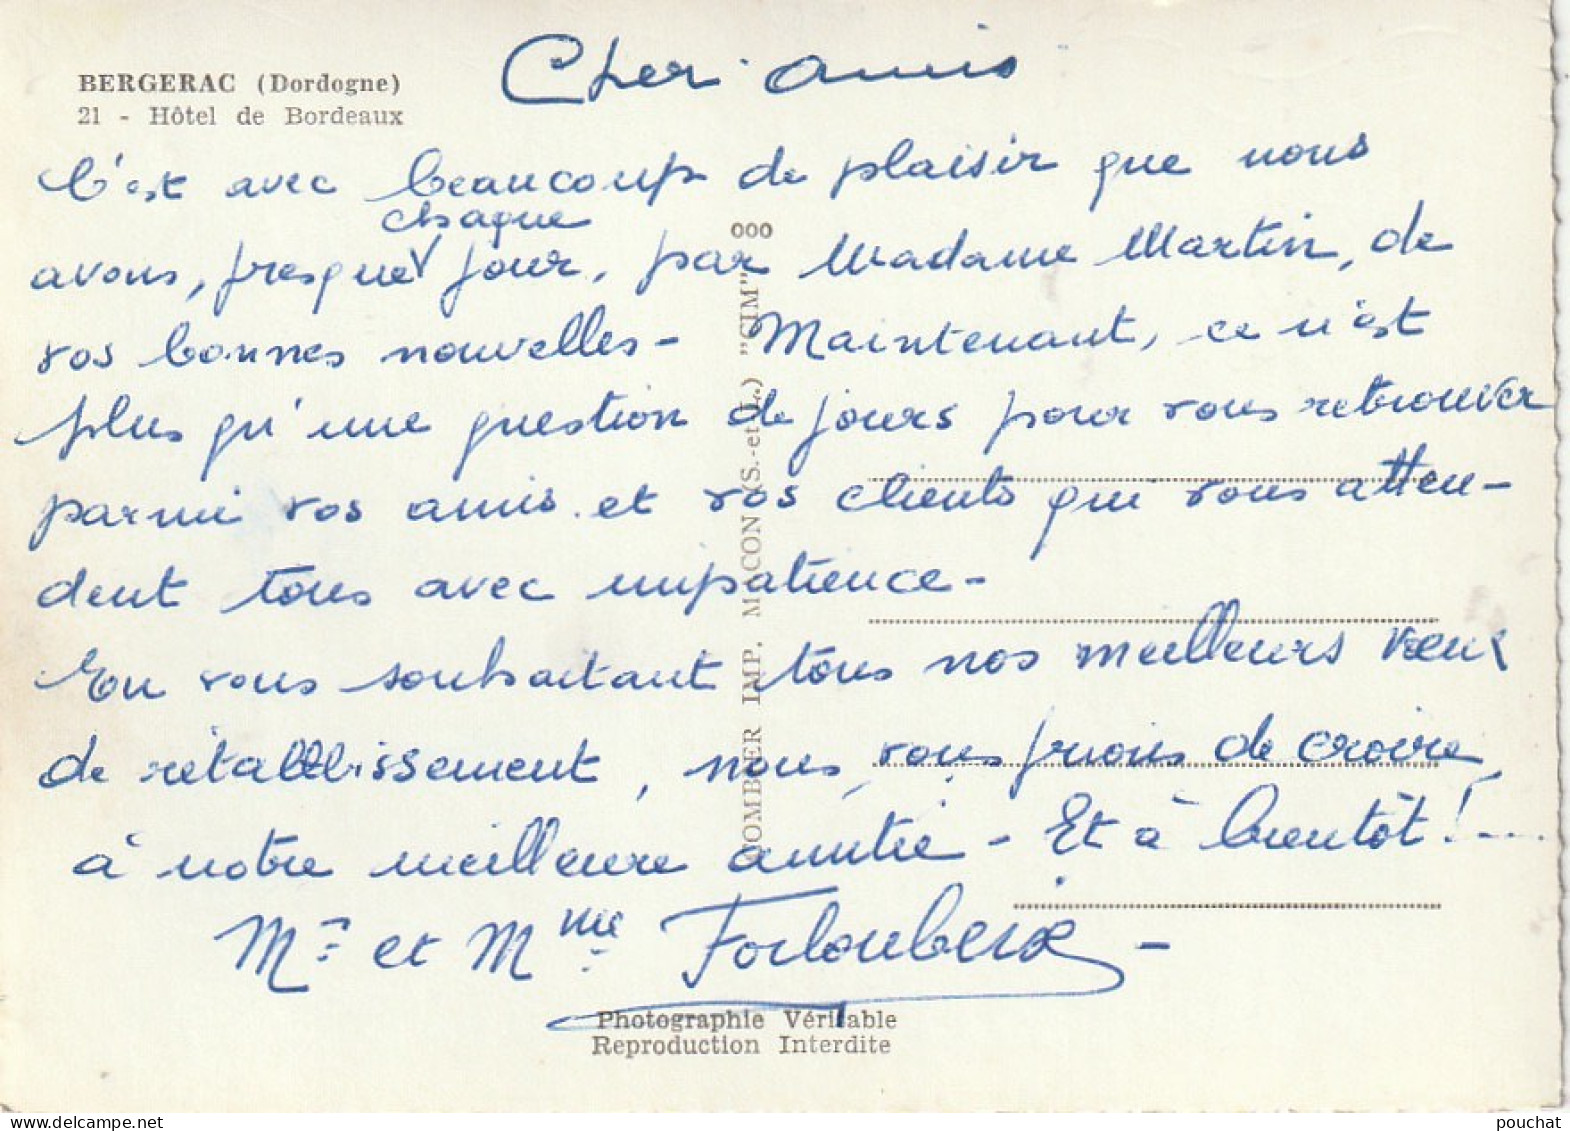 BERGERAC (Dordogne)
21 - Hôtel de Bordeaux
Cher amis
C'est avec beaucoup de plaisir que nous
chaque
avons, presque jour, par Madame Martin, de
vos bonnes nouvelles - Maintenant, ce n'est
plus qu'une question de jours pour vous retrouver
parmi vos amis et vos clients qui vous atten-
dent tous avec impatience -
En vous souhaitant tous nos meilleurs vœux
de rétablissement, nous vous prions de croire,
à notre meilleure amitié - Et à bientôt !....
Mr et Mme
COMBIER IMP. MACON (S.-et-L.) "CIM"
ooo
Photographie Véritable
Reproduction Interdite
pouchat